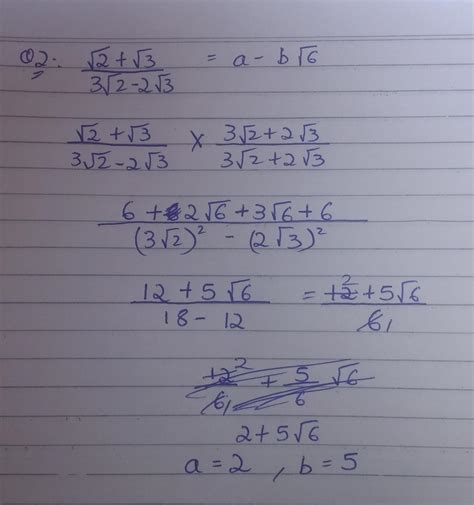 Q2. (√2 + √3)/(3√2 - 2√3) = a - b√6
(√2 + √3)/(3√2 - 2√3) × (3√2 + 2√3)/(3√2 + 2√3)
(6 + 2√6 + 3√6 + 6)/((3√2)² - (2√3)²)
(12 + 5√6)/(18 - 12) = (12 2 + 5√6)/(6 1)
12 2/6 1 + 5/6 √6
2 + 5√6
a = 2 , b = 5